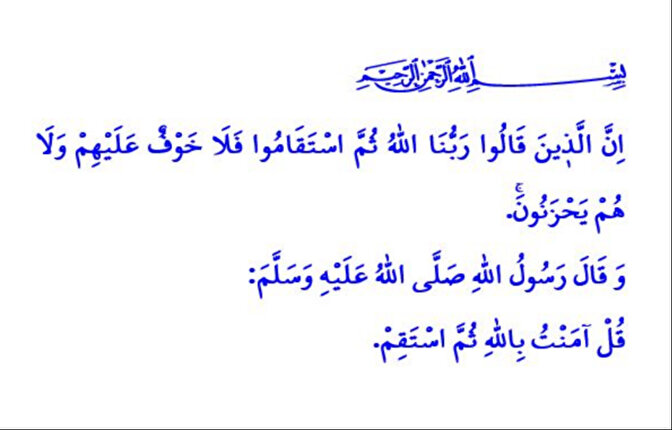 بِسْمِ اللهِ الرَّحْمٰنِ الرَّحِيمِ
اِنَّ الَّذ۪ينَ قَالُوا رَبُّنَا اللهُ ثُمَّ اسْتَقَامُوا فَلَا خَوْفٌ عَلَيْهِمْ وَلَا
هُمْ يَحْزَنُونَۚ.
وَ قَالَ رَسُولُ اللهِ صَلَّى اللهُ عَلَيْهِ وَسَلَّمَ:
قُلْ آمَنْتُ بِاللهِ ثُمَّ اسْتَقِمْ.